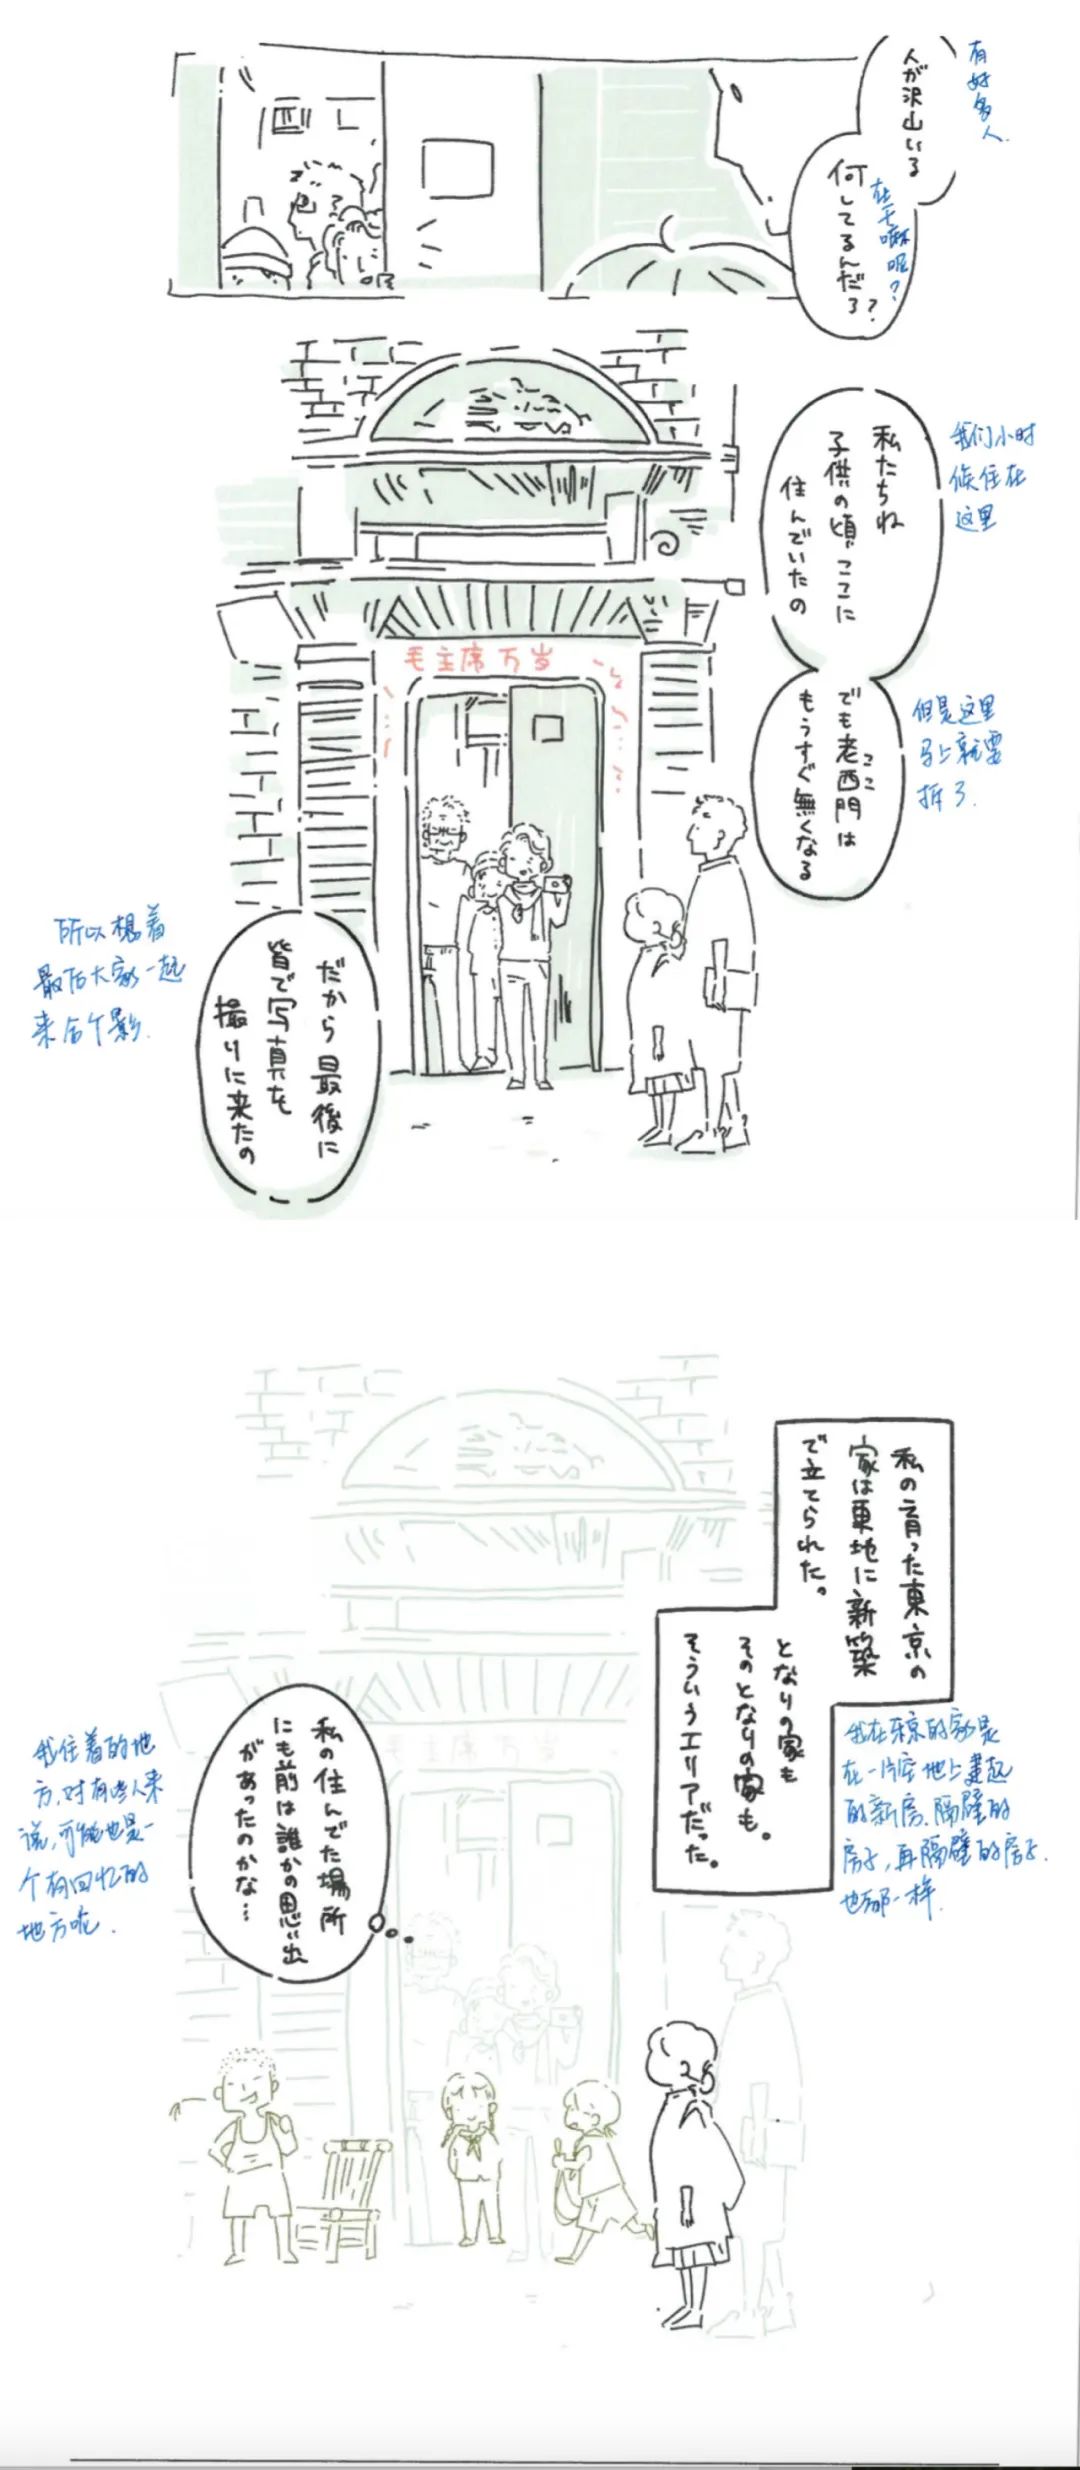 人が沢山いる
有好多人.
何してるんだろ?
在干嘛呢?
私たちね
子供の頃ここに
住んでいたの
我们小时
候住在
这里
でも老西門は
ここ
もうすぐ無くなる
但是这里
马上就要
拆了.
毛主席万岁
だから最後に
皆で写真を
撮りに来たの
所以想着
最后大家一起
来合个影.
私の育った東京の
家は更地に新築
で立てられた。
となりの家も
そのとなりの家も。
そういうエリアだった。
我在东京的家是
在一片空地上建起
的新房、隔壁的
房子,再隔壁的房子.
也都一样.
毛主席万岁
私の住んでた場所
にも前は誰かの思い出
があったのかな…
我住着的地
方,对有些人来
说,可能也是一
个有回忆的
地方呢.